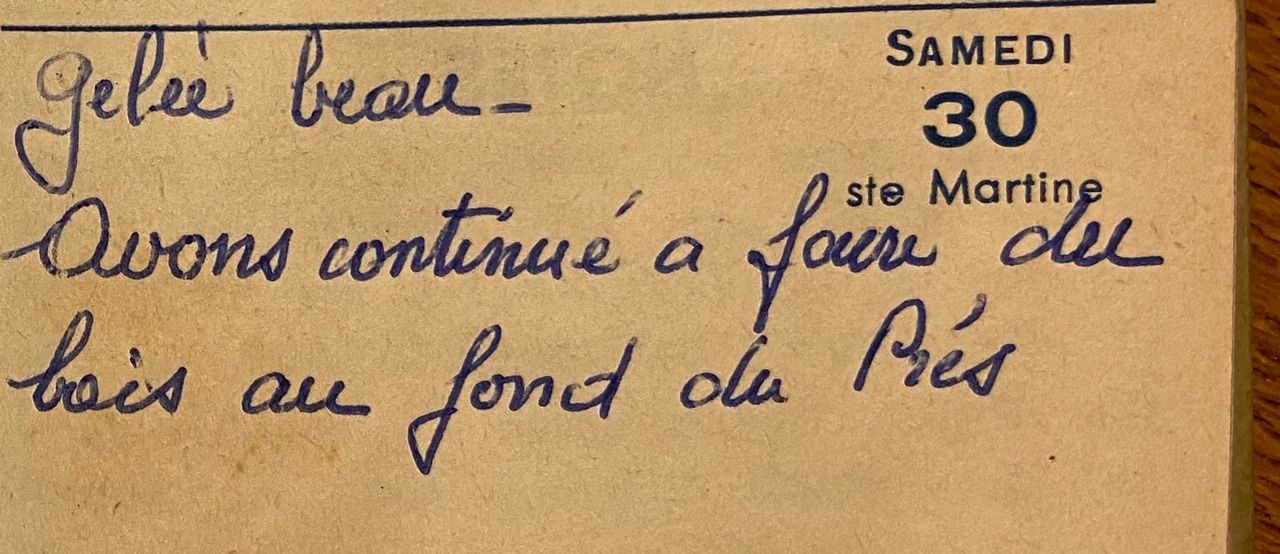 Gelée beau -
SAMEDI
30
ste Martine
Avons continué a faire du
bois au fond du Prés